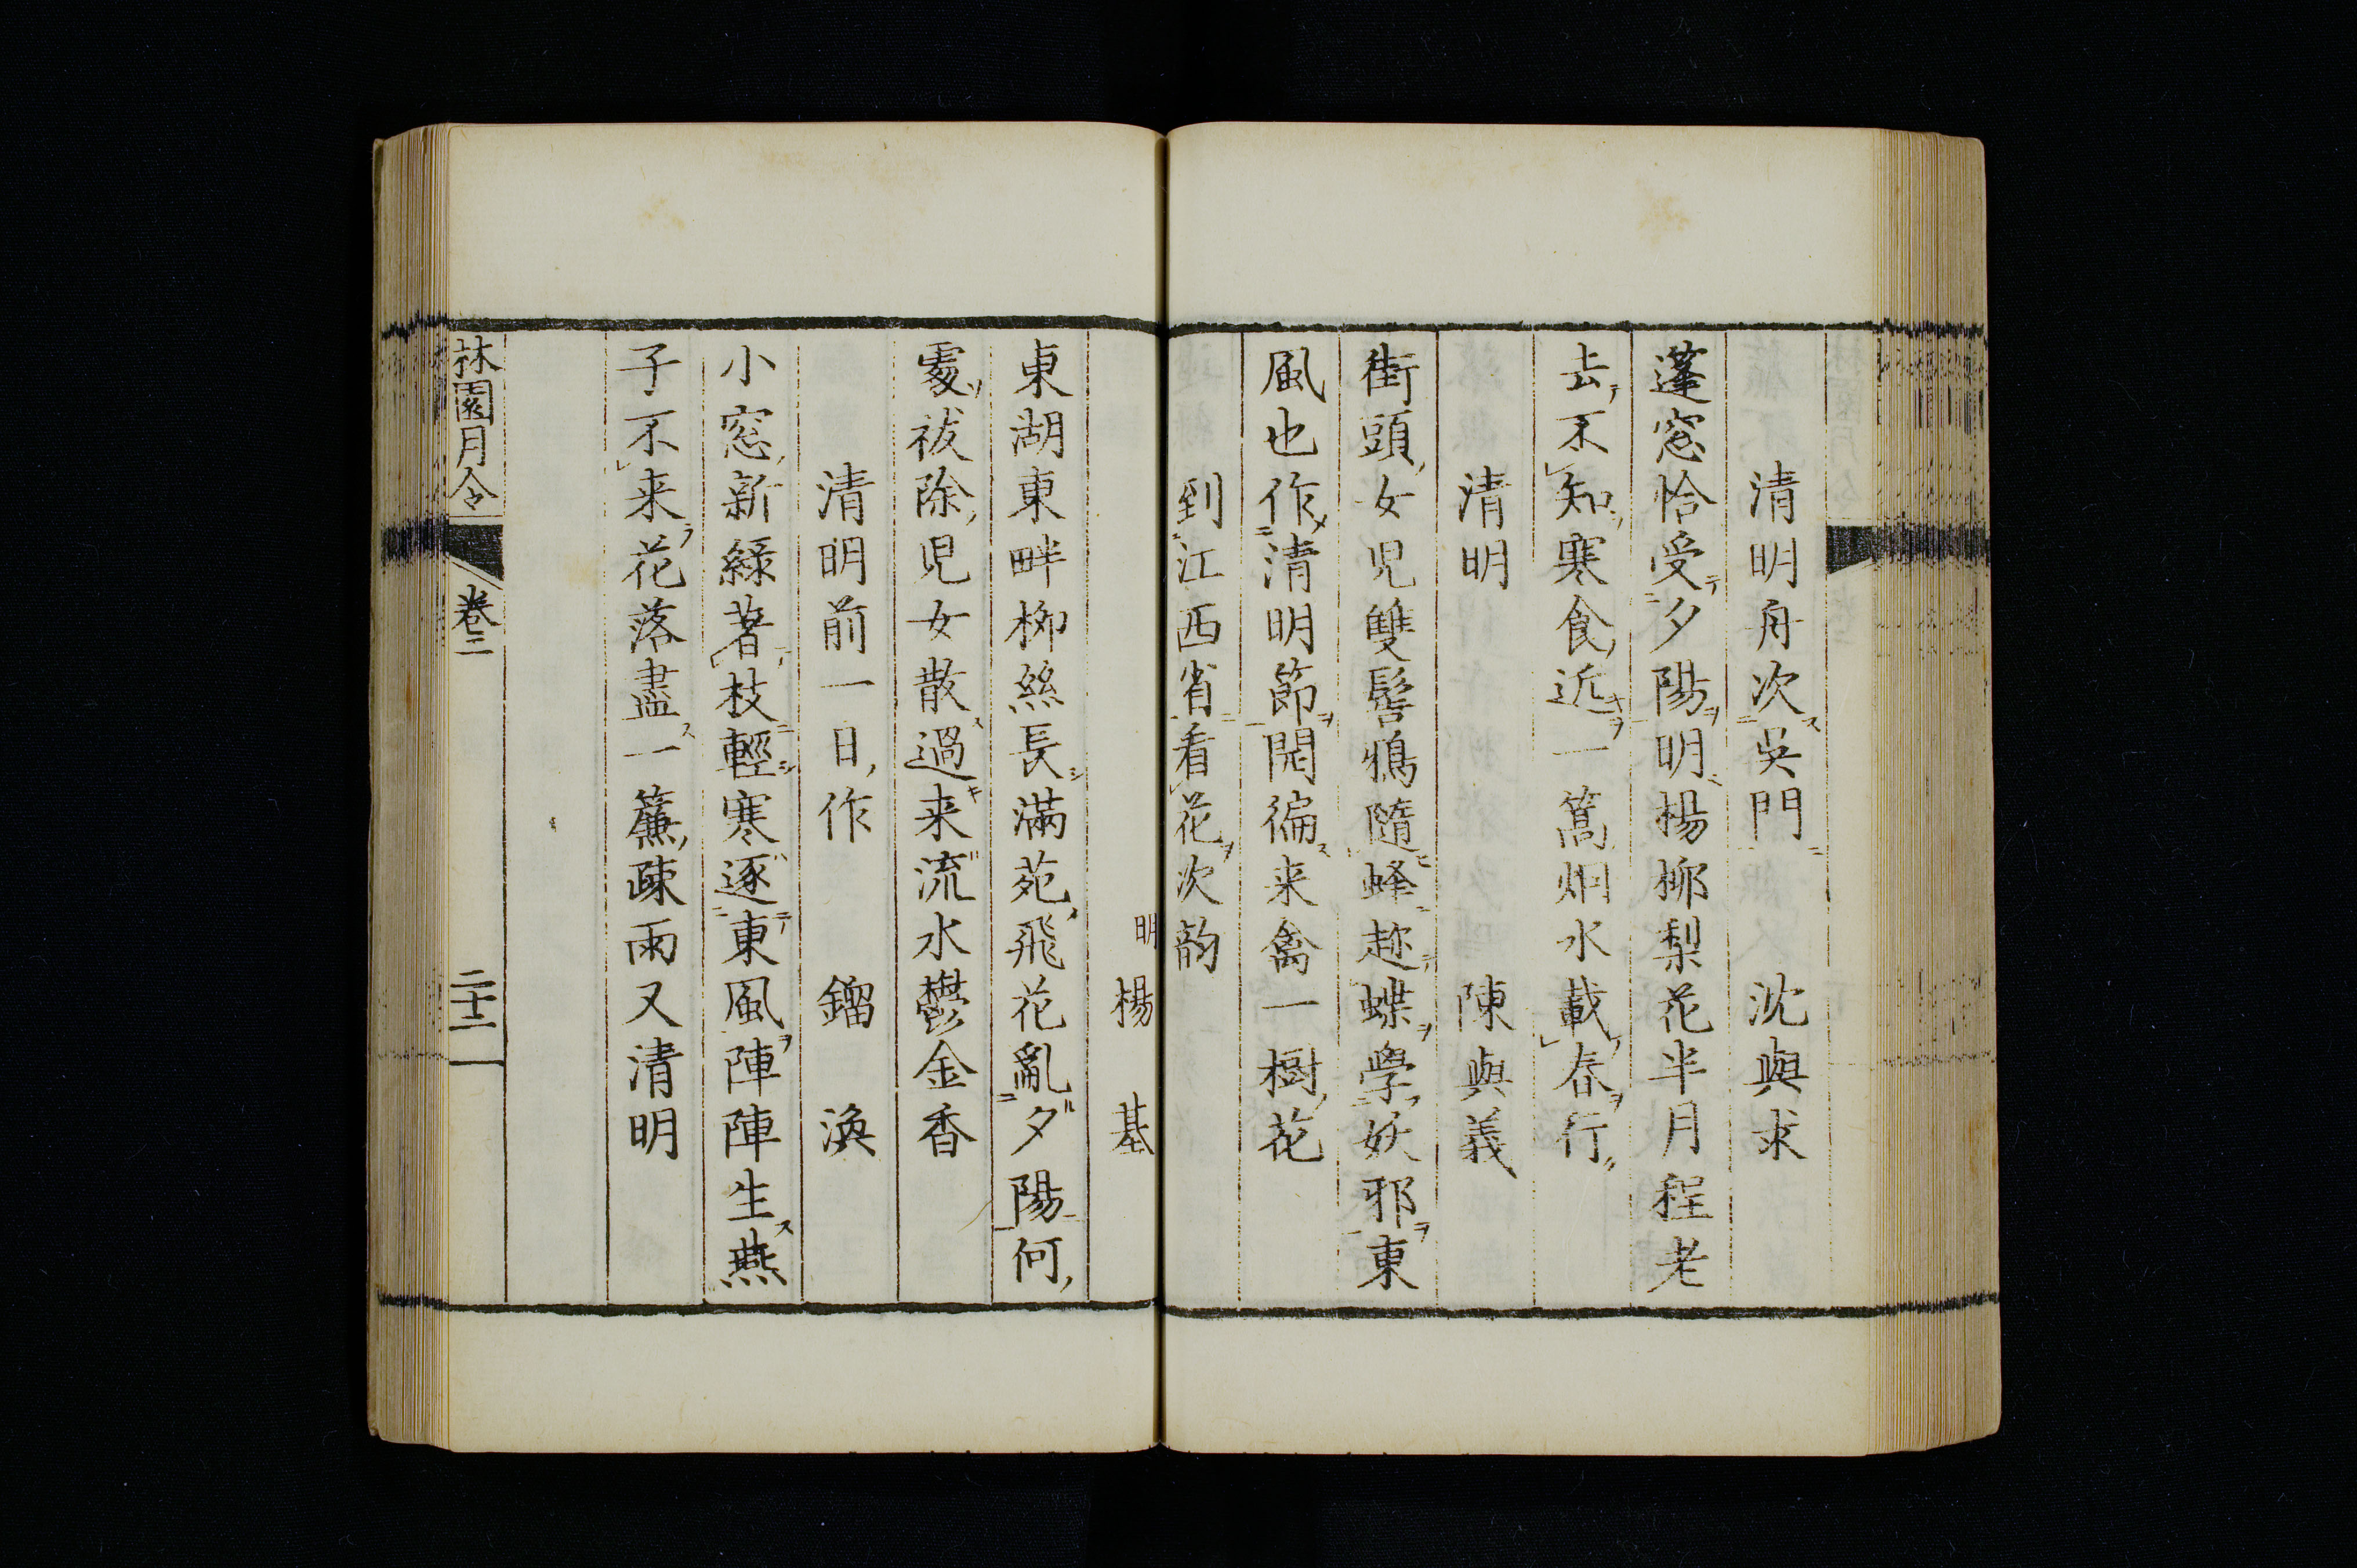 清明舟次吳門 沈與求
蓬窓恰受夕陽明楊柳梨花半月程老
去不知寒食近一篙烟水載春行
清明 陳與義
街頭女児雙髻鴉隨蜂趂蝶學妖邪東
風也作清明節開徧来禽一樹花
到江西省看花次韵
明楊 基
東湖東畔柳絲長滿苑飛花亂夕陽何
處祓除児女散過来流水鬱金香
清明前一日作 鎦 渙
小窓新綠著枝輕寒逐東風陣陣生燕
子不来花落盡一簾疎雨又清明
林園月令 卷二 二十二